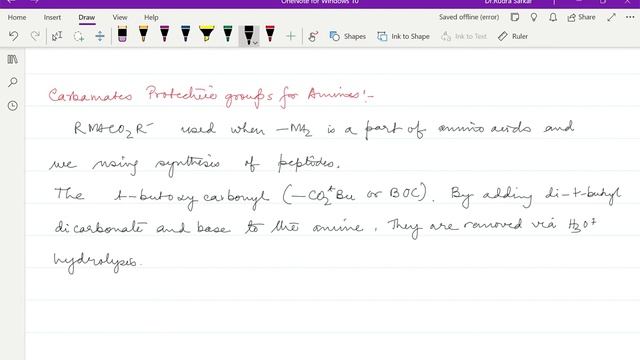 OneNote for Windows 10
Dr.Rudra Sarkar
Home Insert Draw View Help
Saved offline (error)
Share
Shapes Ink to Shape Ink to Text Math Ruler
Carbamates Protective groups for Amines:-
RNHCO2R- used when -NH2 is a part of amino acids and
we using synthesis of peptides.
The t-butoxy carbonyl (-CO2tBu or BOC). By adding di-t-butyl
dicarbonate and base to the amine. They are removed via H3O+
hydrolysis.